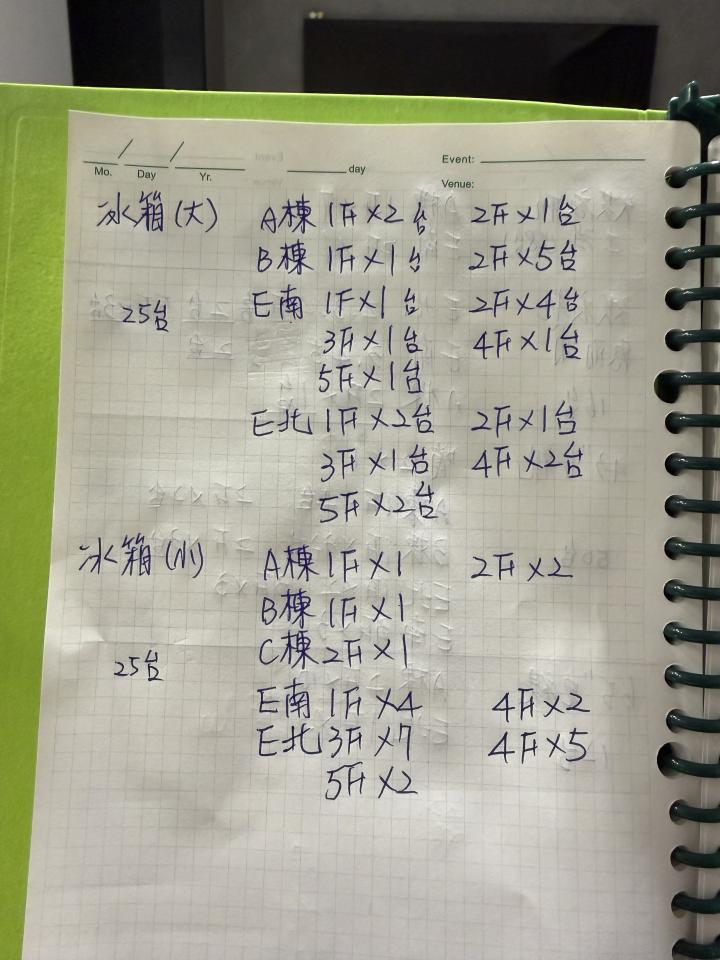 Mo. / Day / Yr. ______day Event:
Venue:
冰箱(大) A棟 1F×2台 2F×1台
B棟 1F×1台 2F×5台
25台 E南 1F×1台 2F×4台
3F×1台 4F×1台
5F×1台
E北 1F×2台 2F×1台
3F×1台 4F×2台
5F×2台
冰箱(小) A棟 1F×1 2F×2
B棟 1F×1
25台 C棟 2F×1
E南 1F×4 4F×2
E北 3F×7 4F×5
5F×2